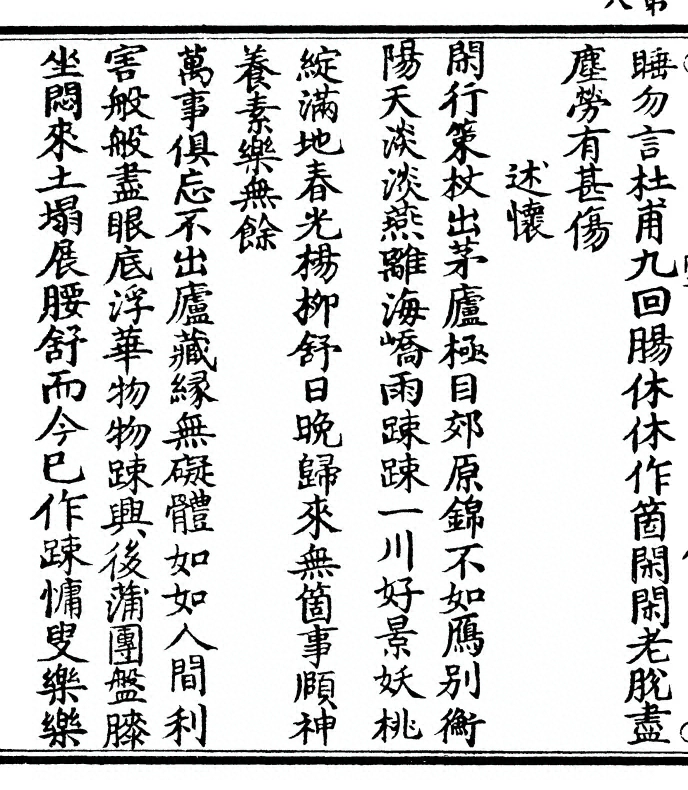 睡勿言杜甫九回腸休休作箇閑閑老脫盡
塵勞有甚傷
述懷
閑行策杖出茅廬極目郊原錦不如鴈別衡
陽天淡淡燕離海嶠雨踈踈一川好景妖桃
綻滿地春光楊柳舒日晚歸來無箇事頤神
養素樂無餘
萬事俱忘不出廬藏縁無礙體如如人間利
害般般盡眼底浮華物物踈興後蒲團盤膝
坐悶來土塌展腰舒而今已作踈慵叟樂樂